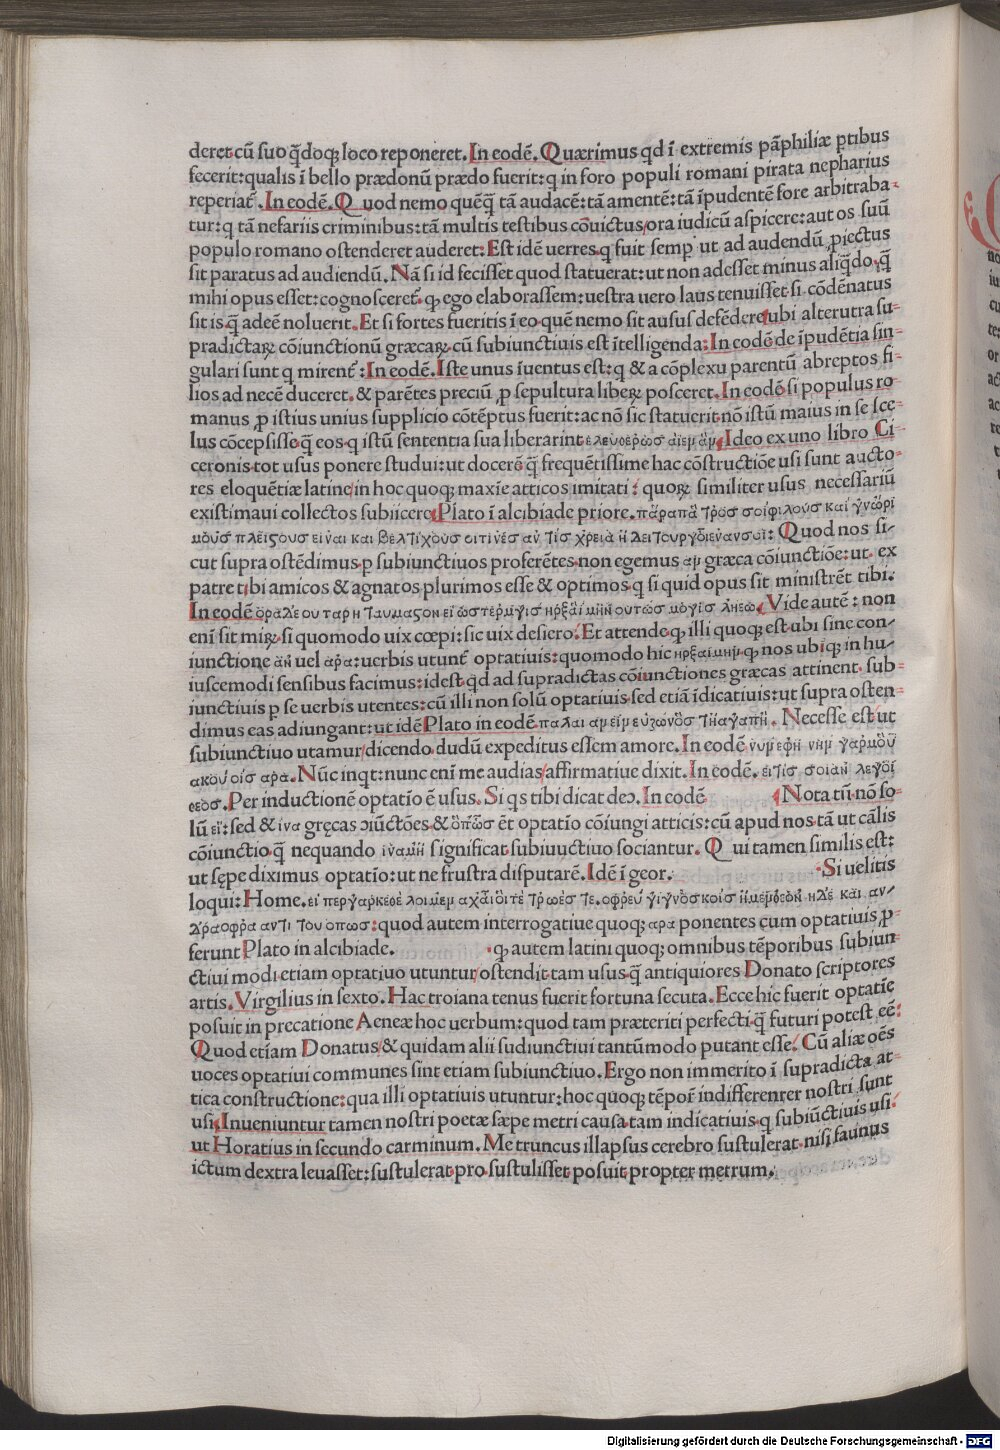 deret cũ suo q̃doqꝫ loco reponeret. In eodẽ. Quærimus qd ĩ extremis pãphiliæ ꝑtibus
fecerit: qualis ĩ bello prædonũ prædo fuerit: q in foro populi romani pirata nepharius
reperiat̃. In eodẽ. Quod nemo quẽq̃ tã audacẽ: tã amentẽ: tã ĩpudentẽ fore arbitraba-
tur: q tã nefariis criminibus: tã multis testibus cõuictus/ora iudicũ aspicere: aut os suũ
populo romano ostenderet auderet: Est idẽ uerres. q fuit semꝑ ut ad audendũ ꝓiectus
sit paratus ad audiendũ. Nã si id fecisset quod statuerat: ut non adesset minus aliq̃do. q̃
mihi opus esset: cognosceret̃. qꝫ ego elaborassem: uestra uero laus tenuisset si cõdẽnatus
sit is q̃ adeẽ noluerit. Et si fortes fueritis ĩ eo quẽ nemo sit ausus defẽdere ubi alterutra su-
prædictaꝝ cõiunctionũ græcaꝝ cũ subiunctiuis est ĩtelligenda: In eodẽ de ĩpudẽtia sin-
gulari sunt q mirent̃: In eodẽ. Iste unus ĩuentus est: q & a cõplexu parentũ abreptos fi-
lios ad necẽ duceret. & parẽtes preciũ ꝓ sepultura liberꝝ posceret. In eodẽ si populus ro-
manus ꝓ istius unius supplicio cõtẽptus fuerit: ac nõ sic statuerit nõ istũ maius in se sce-
lus cõcepisse q̃ eos q istũ sententia sua liberarint ελευθερωσ αιεμ ἂμ. Ideo ex uno libro Ci-
ceronis tot usus ponere studui: ut docerẽ q̃ frequẽtissime hac cõstructiõe usi sunt aucto-
res eloquẽtiæ latine in hoc quoqꝫ maxĩe atticos imitati: quoꝝ similiter usus necessariũ
existimaui collectos subiicere Plato ĩ alcibiade priore. Quod nos si-
cut supra ostẽdimus ꝑ subiunctiuos proferẽtes non egemus αμ græca cõiunctiõe: ut ex
patre tibi amicos & agnatos plurimos esse & optimos q si quid opus sit ministrẽt tibi.
In eodẽ Vide autẽ: non
enĩ sit miꝝ si quomodo uix cœpi: sic uix desiero. Et attende qꝫ illi quoqꝫ est ubi sine con-
iunctione ἂν uel αρα: uerbis utunt̃ optatiuis: quomodo hic ηρξαιμημ qꝫ nos ubiqꝫ in hu-
iuscemodi sensibus facimus: idest qd ad supradictas cõiunctiones græcas attinent sub-
iunctiuis ꝑ se uerbis utentes: cũ illi non solũ optatiuis sed etiã ĩdicatiuis: ut supra osten-
dimus eas adiungant: ut idẽ Plato in eodẽ Necesse est ut
subiunctiuo utamur dicendo dudũ expeditus essem amore. In eodẽ
ακουοισ αρα. Nũc inqt: nunc enĩ me audias affirmatiue dixit. In eodẽ.
Per inductionẽ optatĩo ẽ usus. Si qs tibi dicat deɔ. In codẽ Nota tñ nõ so-
lũ ει: sed & ινα gręcas ɔiũctões & ὅπωσ ẽt optatĩo cõiungi atticis: cũ apud nos tã ut cãlis
cõiunctio q̃ nequando ιναμη significat subiuuctiuo sociantur. Qui tamen similis est:
ut sępe diximus optatĩo: ut ne frustra disputarẽ. Idẽ ĩ geor. Si uelitis
loqui: Home.
quod autem interrogatiue quoqꝫ αρα ponentes cum optatiuis ꝓ-
ferunt Plato in alcibiade. qꝫ autem latini quoqꝫ omnibus tẽporibus subiun-
ctiui modi etiam optatiuo utuntur ostendit tam usus q̃ antiquiores Donato scriptores
artis. Virgilius in sexto. Hac troiana tenus fuerit fortuna secuta. Ecce hic fuerit optatię
posuit in precatione Aeneæ hoc uerbum: quod tam præteriti perfecti q̃ futuri potest eẽ:
Quod etiam Donatus & quidam alii sudiunctiui tantũmodo putant esse. Cũ aliæ oẽs
uoces optatiui communes sint etiam subiunctiuo. Ergo non immerito ĩ supradicta at-
tica constructione: qua illi optatiuis utuntur: hoc quoqꝫ tẽpoꝛ̃ indifferenrer nostri sunt
usi. Inueniuntur tamen nostri poetæ sæpe metri causa tam indicatiuis q subiũctiuis usi:
ut Horatius in secundo carminum. Me truncus illapsus cerebro sustulerat nisi faunus
ictum dextra leuasset: sustulerat pro sustulisset posuit propter metrum.
Digitalisierung gefördert durch die Deutsche Forschungsgemeinschaft - DFG